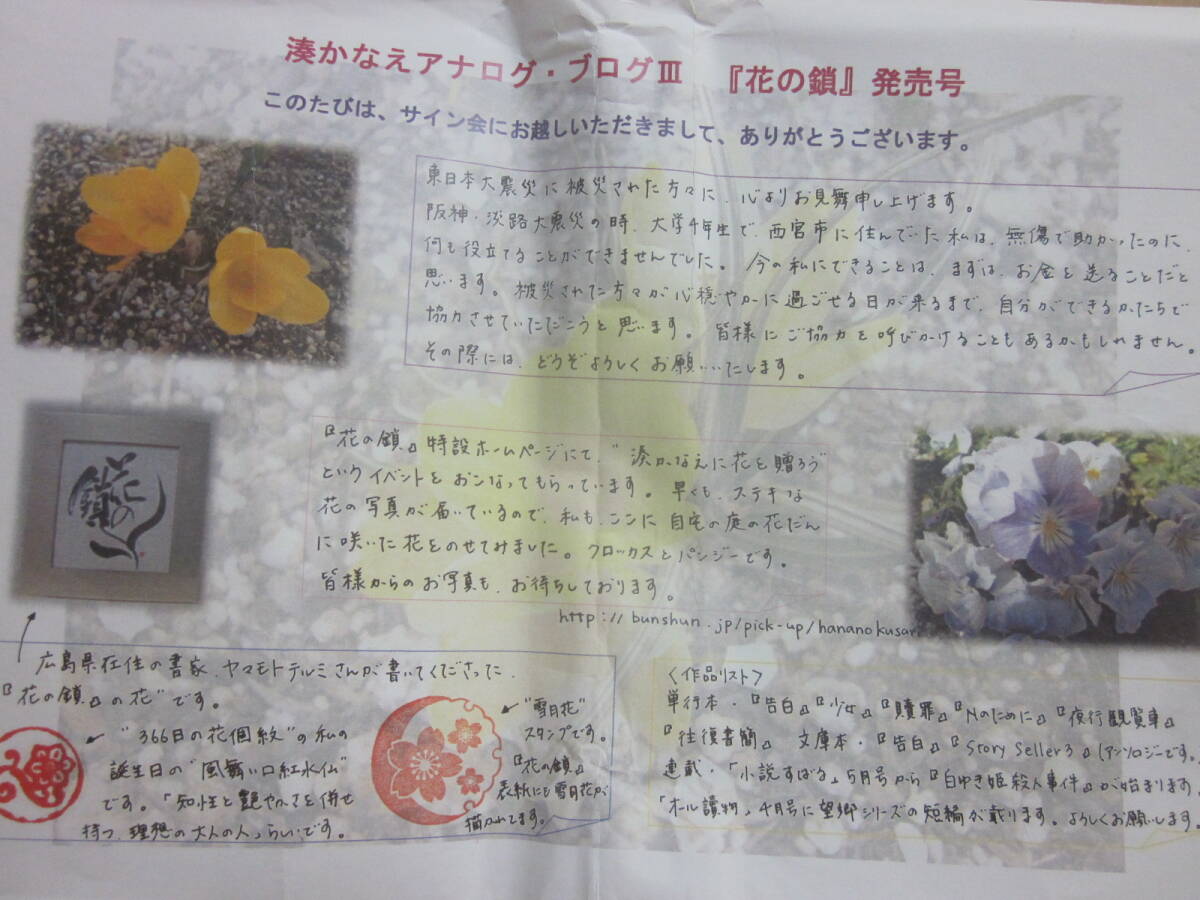 湊かなえアナログ・ブログⅢ 『花の鎖』発売号
このたびは、サイン会にお越しいただきまして、ありがとうございます。
東日本大震災に被災された方々に、心よりお見舞申し上げます。
阪神・淡路大震災の時、大学4年生で、西宮市に住んでいた私は、無傷で助かったのに、
何も役立てることができませんでした。今の私にできることは、まずは、お金を送ることだと
思います。被災された方々が心穏やかに過ごせる日が来るまで、自分ができるかたちで
協力させていただこうと思います。皆様にご協力を呼びかけることもあるかもしれません。
その際には、どうぞよろしくお願いいたします。
『花の鎖』特設ホームページにて、"湊かなえに花を贈ろう"
というイベントをおこなってもらっています。早くも、ステキな
花の写真が届いているので、私も、ここに自宅の庭の花だん
に咲いた花をのせてみました。クロッカスとパンジーです。
皆様からのお写真も、お待ちしております。
http://bunshun.jp/pick-up/hananokusari
花の鎖
広島県在住の書家、ヤマモトテルミさんが書いてくださった、
『花の鎖』の花"です。
"366日の花個紋"の私の
誕生日の"風舞い口紅水仙"
です。「知性と艶やかさを併せ
持つ、理想の大人の人」らしいです。
"雪月花"
スタンプです。
『花の鎖』
表紙にも雪月花が
描かれてます。
〈作品リスト〉
単行本・『告白』『少女』『贖罪』『Nのために』『夜行観覧車』
『往復書簡』 文庫本・『告白』『Story Seller3』(アンソロジーです。
連載・「小説すばる」5月号から『白ゆき姫殺人事件』が始まります。
「オール讀物」4月号に望郷シリーズの短編が載ります。よろしくお願いします。